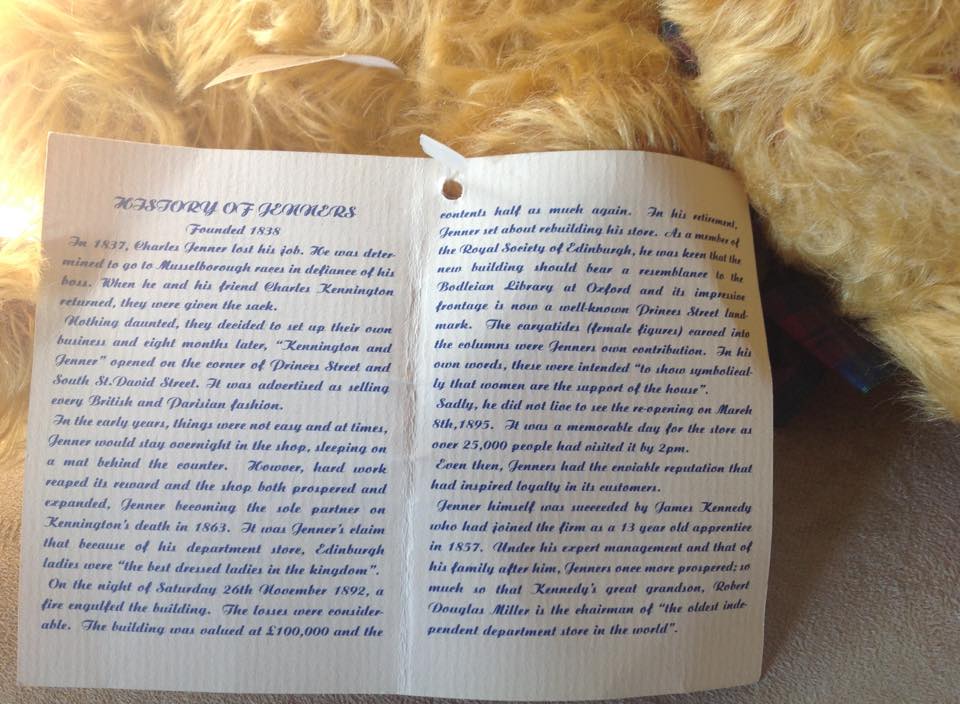 HISTORY OF JENNERS
Founded 1838
In 1837, Charles Jenner lost his job. He was deter-
mined to go to Musselborough races in defiance of his
boss. When he and his friend Charles Kennington
returned, they were given the sack.
Nothing daunted, they decided to set up their own
business and eight months later, "Kennington and
Jenner" opened on the corner of Princes Street and
South St.David Street. It was advertised as selling
every British and Parisian fashion.
In the early years, things were not easy and at times,
Jenner would stay overnight in the shop, sleeping on
a mat behind the counter. However, hard work
reaped its reward and the shop both prospered and
expanded, Jenner becoming the sole partner on
Kennington's death in 1863. It was Jenner's claim
that because of his department store, Edinburgh
ladies were "the best dressed ladies in the kingdom".
On the night of Saturday 26th November 1892, a
fire engulfed the building. The losses were consider-
able. The building was valued at £100,000 and the
contents half as much again. In his retirement,
Jenner set about rebuilding his store. As a member of
the Royal Society of Edinburgh, he was keen that the
new building should bear a resemblance to the
Bodleian Library at Oxford and its impressive
frontage is now a well-known Princes Street land-
mark. The caryatides (female figures) carved into
the columns were Jenners own contribution. In his
own words, these were intended "to show symbolical-
ly that women are the support of the house".
Sadly, he did not live to see the re-opening on March
8th,1895. It was a memorable day for the store as
over 25,000 people had visited it by 2pm.
Even then, Jenners had the enviable reputation that
had inspired loyalty in its customers.
Jenner himself was succeeded by James Kennedy
who had joined the firm as a 13 year old apprentice
in 1857. Under his expert management and that of
his family after him, Jenners once more prospered; so
much so that Kennedy's great grandson, Robert
Douglas Miller is the chairman of "the oldest inde-
pendent department store in the world".